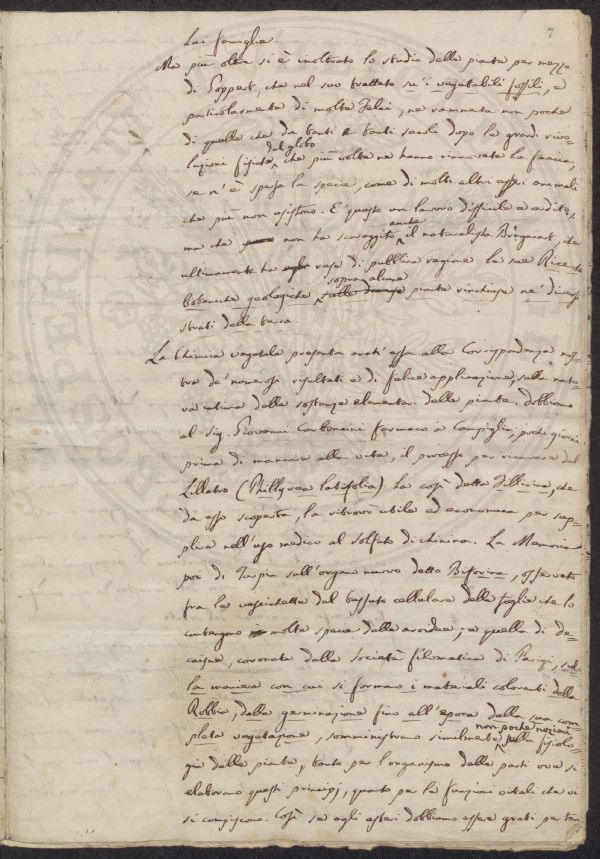 7
lei famiglie.
Ma più oltre si è inoltrato lo studio delle piante per mezzo
di Goppert, che nel suo trattato su' i vegetabili fossili, e
particolarmente di molte Felci, ne rammenta non poche
di quelle che da tanti e tanti secoli dopo le grandi rivo-
luzioni fisiche del globo che più volte ne hanno rinnovata la faccia,
se n'è spersa la specie, come di molti altri esseri animali
che più non esistono. E' questo un lavoro difficile e ardito,
ma che non ha scoraggito anche il naturalista Brogniart, che
ultimamente ha rese di pubblica ragione le sue Ricerche
botaniche geologiche sopra alcune piante rinchiuse ne' diversi
strati della terra.
La Chimica vegetale presenta anch'essa alla Corrispondenza nos-
tra de' numerosi risultati e di felice applicazione, sulla natu-
ra intima delle sostanze elementari delle piante. Dobbiamo
al Sig. Giovanni Carboncini farmaco a Campiglia, pochi giorni
prima di mancare alla vita, il processo per ricavare dal
Lillatro (Phillyrea latifolia) la così detta Fillirina, che
da esso scoperta, la ritrovò utile ed economica per sup-
plire nell'uso medico al solfato di chinina. La Memoria
poi di Turpin sull'organo nuovo detto Biforina, osservato
fra le vescichette del tessuto cellulare delle foglie che lo
contengono in molte specie delle aroidee; e quella di De-
caisne, coronata dalla società filomatica di Parigi, sul-
la maniera con cui si formano i materiali coloranti della
Robbia, dalla germinazione fino all'epoca della sua com-
pleta vegetazione, somministrano similmente non poche nozioni sulla fisiolo-
gia delle piante, tanto per l'organismo delle parti ove si
elaborano questi principj, quanto per le funzioni vitali che vi
si compiscono. Così se agli esteri dobbiamo essere grati per tan